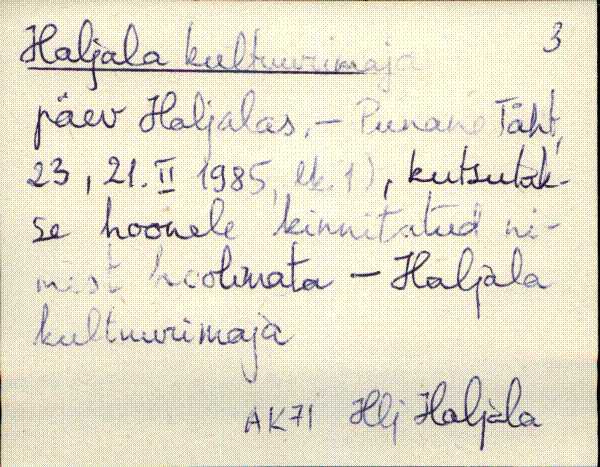 Haljala kultuurimaja 3
päev Haljalas, - Punane Täht,
23, 21. II 1985, lk. 1), kutsutak-
se hoonele kinnitatud ni-
mist hoolimata - Haljala
kultuurimaja
AK71 Hlj Haljala